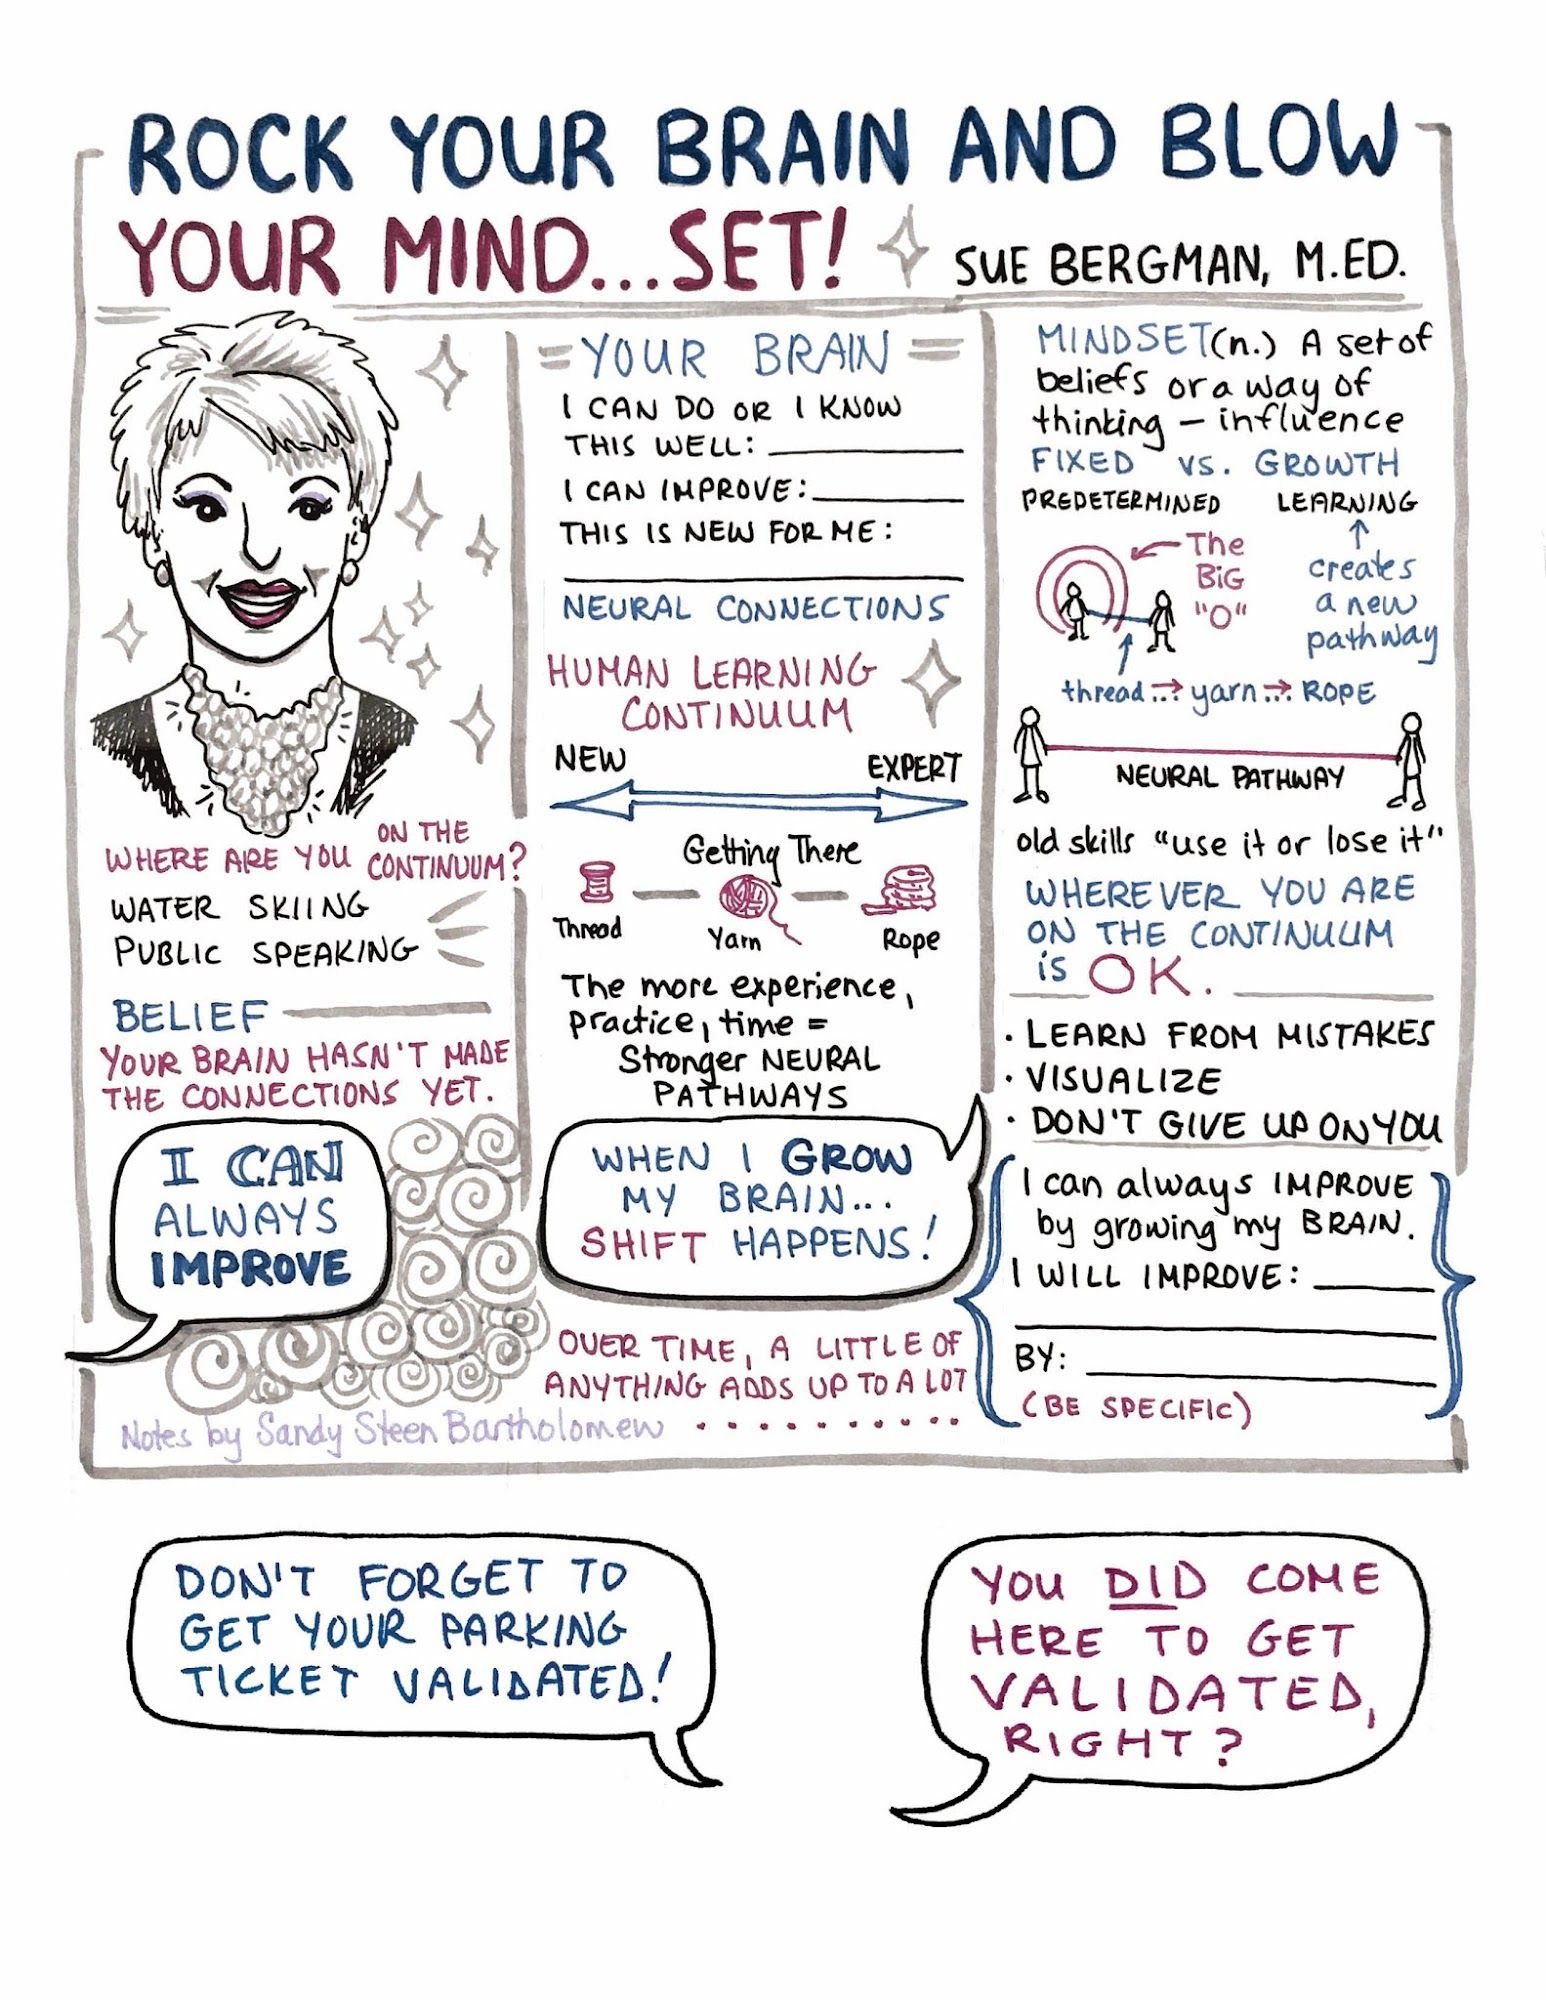 ROCK YOUR BRAIN AND BLOW
YOUR MIND...SET!
SUE BERGMAN, M.ED.
WHERE ARE YOU ON THE
CONTINUUM?
WATER SKIING
PUBLIC SPEAKING
BELIEF
YOUR BRAIN HASN'T MADE
THE CONNECTIONS YET.
I CAN
ALWAYS
IMPROVE
Notes by Sandy Steen Bartholomew
= YOUR BRAIN =
I CAN DO OR I KNOW
THIS WELL: ________
I CAN IMPROVE: ________
THIS IS NEW FOR ME:
________
NEURAL CONNECTIONS
HUMAN LEARNING
CONTINUUM
NEW EXPERT
Getting There
Thread Yarn Rope
The more experience,
practice, time =
Stronger NEURAL
PATHWAYS
WHEN I GROW
MY BRAIN...
SHIFT HAPPENS!
OVER TIME, A LITTLE OF
ANYTHING ADDS UP TO A LOT
..........
MINDSET (n.) A set of
beliefs or a way of
thinking – influence
FIXED VS. GROWTH
PREDETERMINED LEARNING
The
BiG
"O"
creates
a new
pathway
thread ..→ yarn ..→ ROPE
NEURAL PATHWAY
old skills "use it or lose it"
WHEREVER YOU ARE
ON THE CONTINUUM
is OK.
· LEARN FROM MISTAKES
· VISUALIZE
· DON'T GIVE UP ON YOU
I can always IMPROVE
by growing my BRAIN.
I WILL IMPROVE: ________
________
BY: ________
(BE SPECIFIC)
DON'T FORGET TO
GET YOUR PARKING
TICKET VALIDATED!
YOU DID COME
HERE TO GET
VALIDATED,
RIGHT?